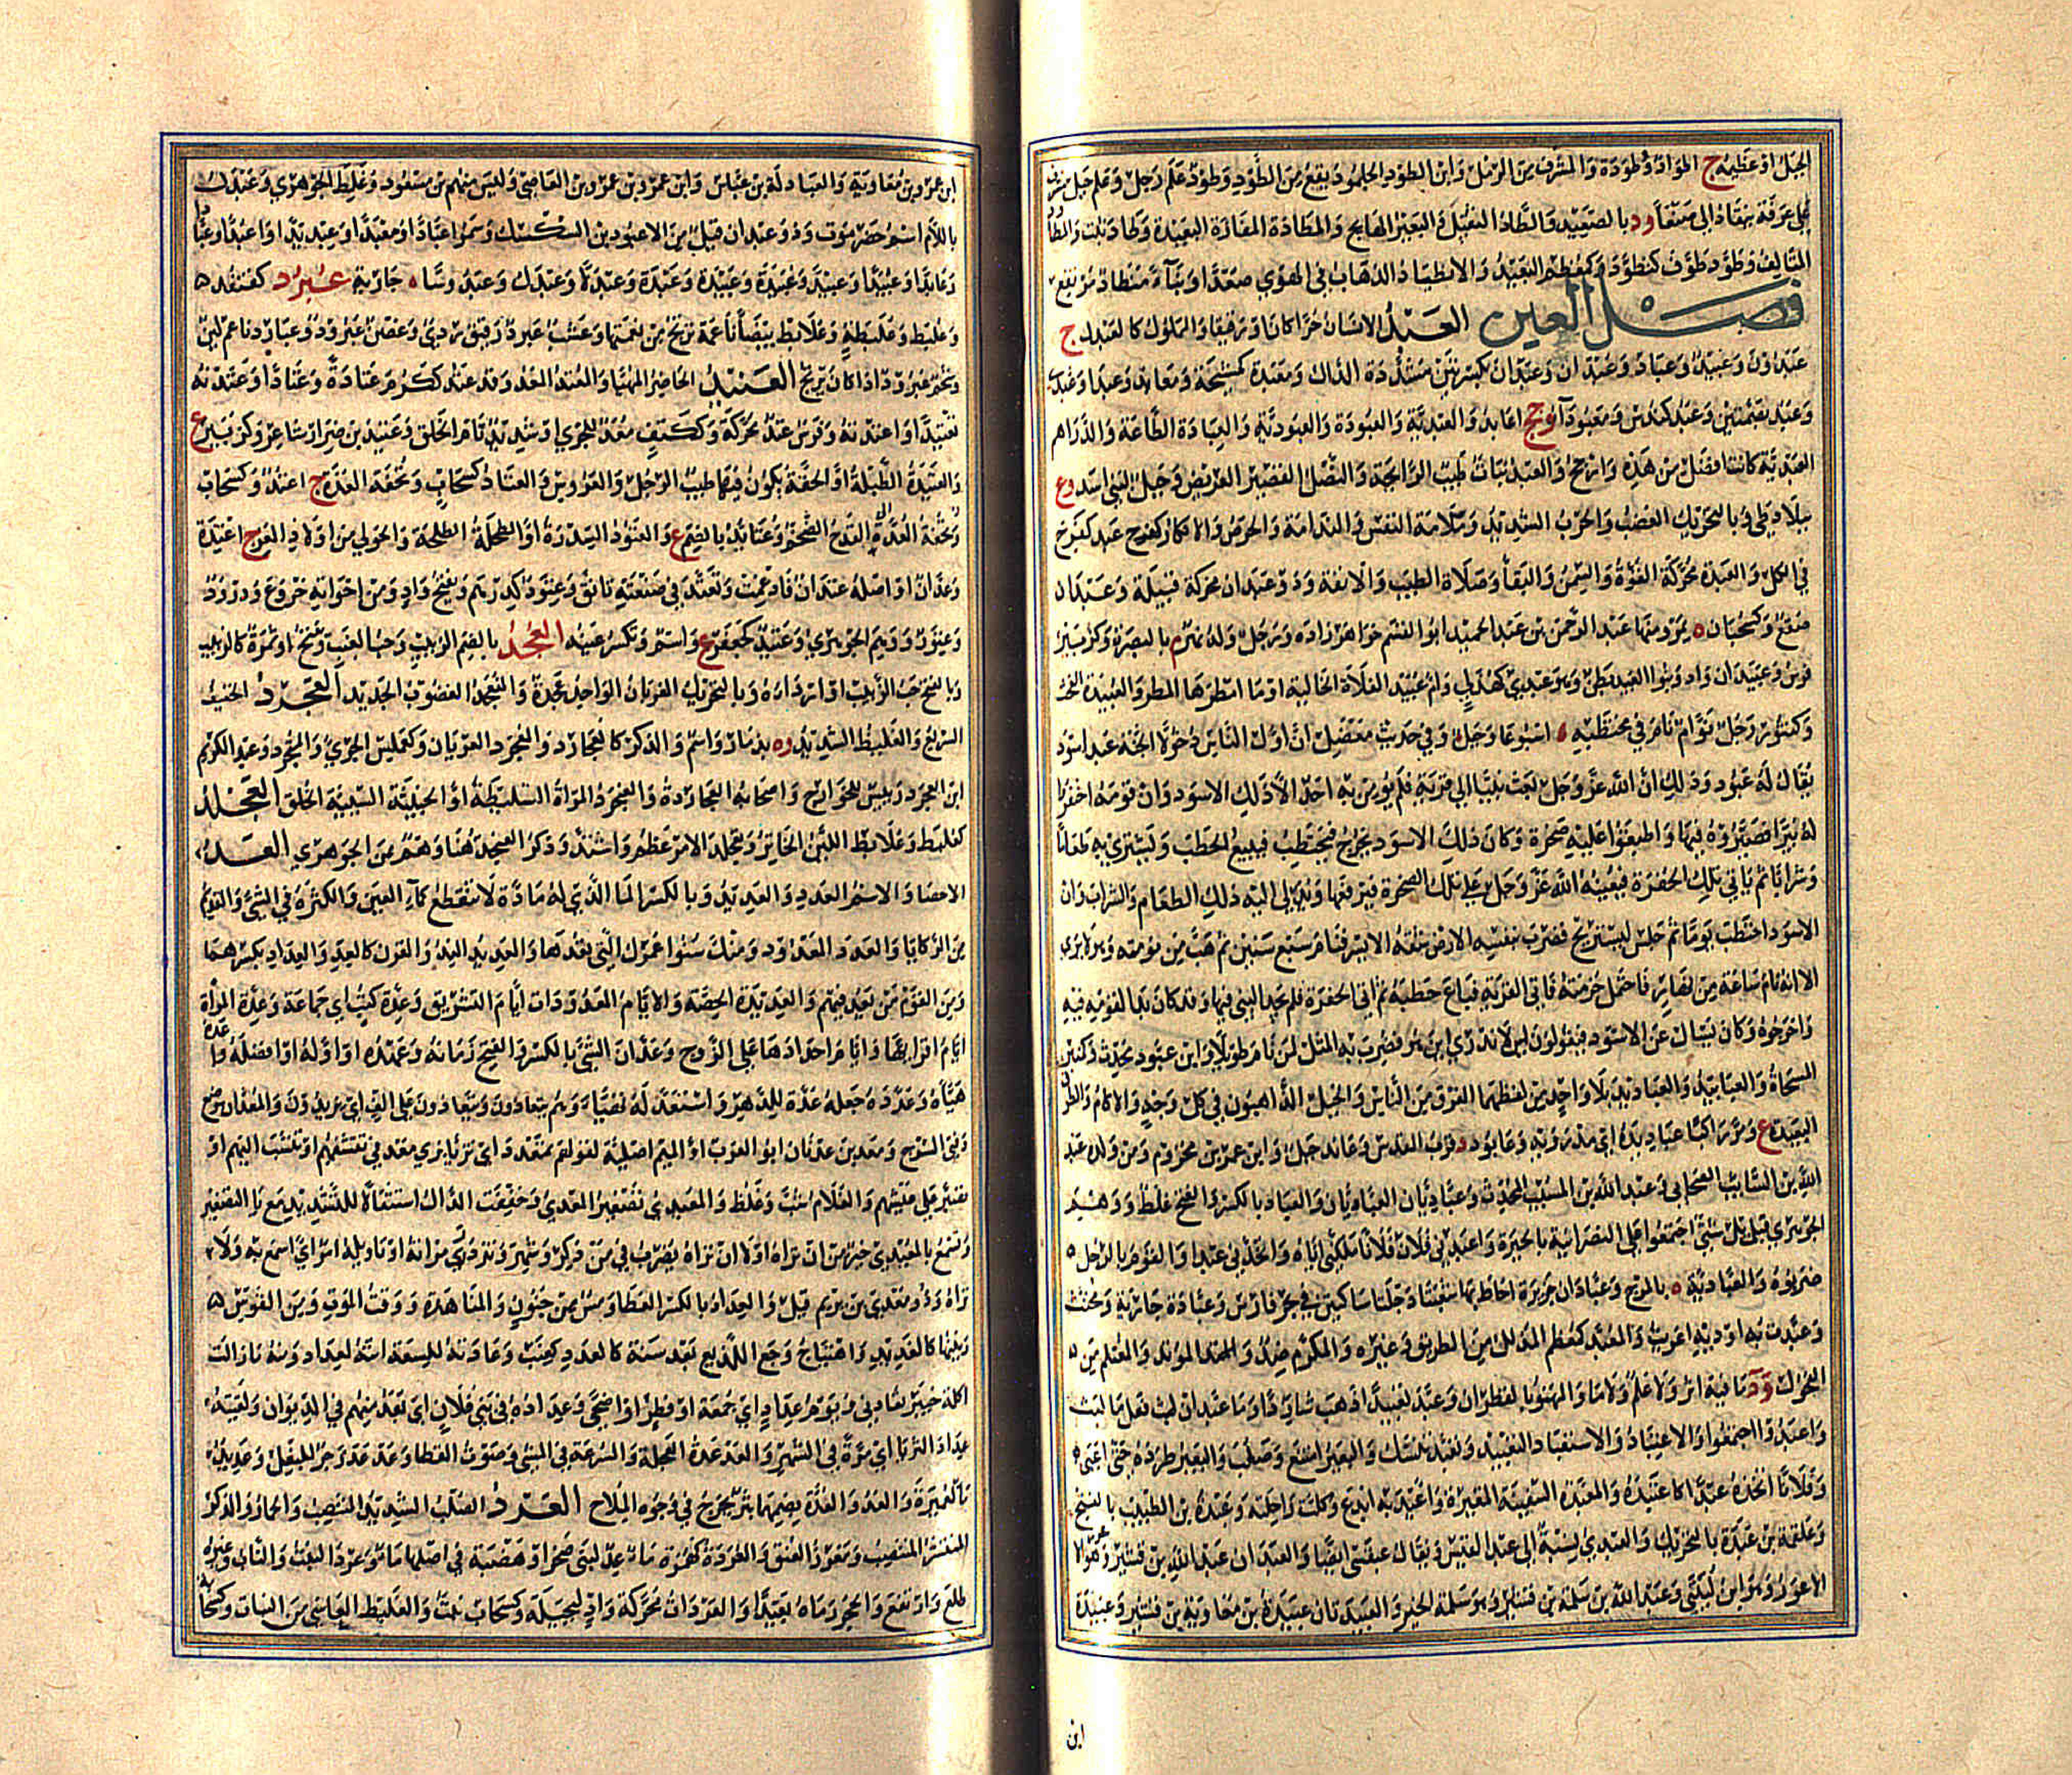 الجبل او عظيمه ج اطواد وطودة والمشرف من الرمل وابن الطود الجلمود يقع من الطود وطود علم رجل وعلم جبل مشرف
على عرفة ينقاد الى صنعا ود بالصعيد والطاد الثقيل والبعير الهايج والمطادة المفازة البعيدة
التالف وطود طوف كتطود وكمعظم البعيد والانطياد الذهاب في الهوى صعدا وبناء منطاد مرتفع
فصل العين العبد الانسان حرا كان او رقيقا والمملوك كالعبدل ج
عبدون وعبيد وعباد وعبدان وعبدان بكسرتين مشددة الدال ومعبدة كمشيخة ومعابد وعبدا وعبد
وعبد بضمتين وعبد كندس ومعبودآ وجج اعابد والعبدية والعبودة والعبودية والعبادة الطاعة والدراهم
العبدية كانت افضل من هذه وارجح والعبد نبات طيب الرايحة والنصل القصير العريض وجبل لبني اسد وع
ببلاد طي وبالتحريك الغضب والحرب الشديد وملامة النفس والندامة والحرص والانكار كفرح عبد كفرح
في الكل والعبدة محركة القوة والسمن والبقا وصلاة الطيب والانفة وذو عبدان محركة قبيلة وعبدان
صقع وكسحبان ه بمرو منها عبد الرحمن بن عبد الحميد ابو القسم خواهرزاده ورجل وله نهر م بالبصرة وكزبير
فرس وعبيدان واد وبنوا العبيد بطن وهو عبدي كهذلي وام عبيد الفلاة الخالية او ما اخطاها المطر والعبيدة الفحث
وكتنور رجل نوام نام في محتطبه اسبوعا وجبل وفي حديث معضل ان اول الناس دخولا الجنة عبد اسود
يقال له عبود وذلك ان الله عز وجل بعث نبيا الى قرية فلم يومن به احد الا ذلك الاسود وان قومه احتفروا
له بيرا فصيروه فيها واطبقوا عليه صخرة وكان ذلك الاسود يخرج فيحتطب فيبيع الحطب ويشتري به طعاما
وشرابا ثم ياتي تلك الحفرة فيعينه الله عز وجل على تلك الصخرة فيرفعها ويدلى اليه ذلك الطعام والشراب وان
الاسود احتطب يوما ثم جلس ليستريح فضرب بنفسه الارض شقه الايسر فنام سبع سنين ثم هب من نومته وهو لا يرى
الا انه نام ساعة من نهار فاحتمل حزمته فاتى القرية فباع حطبه ثم اتى الحفرة فلم يجد النبي فيها وقد كان بدا لقومه فيه
واخرجوه وكان يسال عن الاسود فيقولون له لا ندري اين هو فضرب به المثل لمن نام طويلا وابن عبود محدث وكمنبر
المسحاة والعبابيد والعباديد بلا واحد من لفظهما الفرق من الناس والخيل الذاهبون في كل وجه والاكام والطرق
البعيدة ع ومر راكبا عباديده اي مذرويه وعابود د قرب القدس وعابد جبل وابن عمر بن مخزوم ومن ولده عبد
الله بن السايب الصحابي وعبد الله بن المسيب المحدث وعباديان العباديان والعباد بالكسر والفتح غلط ووهم
الجوهري قبايل شتى اجتمعوا على النصرانية بالحيرة واعبدني فلان فلانا ملكني اياه واتخذني عبدا والقوم بالرجل
ضربوه والعبادية ه بالمرج وعبادان جزيرة احاط بها شعبتا دجلة ساكبتين في بحر فارس وعبادة جارية ومخنث
وعبدت به اوذيه اغريت والمعبد كمعظم المذلل من الطريق وغيره والمكرم ضد والمغتلم من
الفحول ود ما فيه اثر ولا علم ولا ما والمهنو بالقطران وعبد تعبيدا ذهب شاردا وما عبد ان لبث فعل ما لبث
واعبدوا اجتمعوا والاعتباد والاستعباد التعبيد وتعبد تنسك والبعير امتنع وصعب والبعير طرده حتى اعيى
وفلانا اتخذه عبدا كاعتبده والمعبدة السفينة المقيرة واعبد به ابدع وكلت راحلته وعبدة بن الطبيب بالفتح
وعلقمة بن عبدة بالتحريك والعبدي نسبة الى عبد القيس ويقال عبقسي ايضا والعبدان عبد الله بن قشير وهو
الاعور وهو ابن لبيني وعبد الله بن سلمة بن قشير وهو سلمة الخير والعبيدتان عبيدة بن معاوية بن قشير وعبيدة
ابن
ابن عمرو بن معاوية والعبادلة ابن عباس وابن عمر وابن عمرو بن العاصي وليس منهم بن مسعود وغلط الجوهري وعبدل
باللام اسم حضرموت وذو عبدان قيل من الاعبود بن السكسك وسموا عبادا ومعبدا وعبديدا واعبدا وعبادا
وعابدا وعبيدا وعبيدا وعبيدة وعبيدة وعبدة وعبدة وعبدل وعبدوسا ه جارية عبرد كقنفذ
وعلبط وعلبطة وعلابط بيضا ناعمة ترتج من نعمتها وعشب عبرد رقيق ردي وغصن عبرود وعبارد ناعم لين
وشحم عبرود اذا كان يرتج العتيد الحاضر المهيا والمعتد المعد وقد عتد ككرم عتادة وعتادا وعتدته
تعتيدا واعتدته وفرس عتد محركة وككتف معد للجري او شديد تام الخلق وعتيد بن ضرار شاعر وكزبير ع
والعتيدة الطبلة او الحقة يكون فيها طيب الرجل والعروس والعتاد كسحاب العدة ج اعتد وكسحاب
القدح الضخم وعتايد بالضم ع والعتود السدرة او الطلحة والحولي من اولاد المعز ج اعتدة
وعدان واصله عتدان فادغمت وتعتد في صنعته تانق وعتود كدرهم ويفتح واد ومن اخواته خروع وذرود
وعتور ووهم الجوهري وعتيد كجعفر ع واسم وتكسر عينه العجد بالضم الزبيب وحب العنب ويفتح او ثمرة كالزبيب
وبالفتح حب الزبيب او رداؤه وبالتحريك الغربان الواحد عجدة والمتعجد الغضوب الحديد العجرد الخفيف
السريع والغليظ الشديد وه بذمار واسم والذكر كالعجارد والعجرد العريان وكعملس الجري والمعجرد وعبد الكريم
ابن العجرد ريس للخوارج واصحابه العجاردة والعنجرد المراة السليطة او الخبيثة السيئة الخلق العجلد
كعلبط وعلابط اللبن الخاثر وعجلد الامر عظم واشتد وذكر العنجد هنا وهم من الجوهري العد
الاحصا والاسم العدد والعديد وبالكسر الما الذي له مادة لا تنقطع كماء العين والكثرة في الشي والقديم
من الركايا والعدد المعدود ومنك سنو عمرك التي تعدها والعديد الند والقرن كالعد والعداد بكسرهما
ومن القوم من يعد فيهم والعديدة الحصة والايام المعدودات ايام التشريق وعدة كتب اي جماعة وعدة المراة
ايام اقرايها وايام احدادها على الزوج وعدان الشي بالكسر والفتح زمانه وعهده او اوله او افضله
هياه وعدده جعله عدة للدهر واستعد له تهيا وهم يتعادون ويتعددون على الف اي يزيدون والمعدان موضع
دفتي السرج ومعد بن عدنان ابو العرب او الميم اصلية لقولهم تمعدد اي تزيا بزي معد في تقشفهم او تنسب اليهم او
تصبر على عيشهم والغلام شب وغلظ والمعيدي تصغير المعدي وخففت الدال استثقالا للتشديد مع يا التصغير
وتسمع بالمعيدي خير من ان تراه او لا ان تراه يضرب في من ذكر وشهر وتزدري مراته او تاويله امر اي اسمع به ولا
تراه وذو معدي بن بريم قيل والعداد بالكسر العطا ومس من جنون والمناهدة ووقت الموت ومن القوس
رنينها كالعديد واهتياج وجع اللديغ بعد سنة كالعدد كعنب وعادته اللسعة اتته لعداد ومنه ما زالت
اكلة خيبر تعادني ويوم عداد اي جمعة او فطر او اضحى وعداده في بني فلان اي يعد منهم في الديوان ولقيته
عداد الثريا اي مرة في الشهر والعدعدة العجلة والسرعة في المشي وصوت القطا وعد عد زجر للبغل وعديد
ما لعميرة والعد والعدة بضمهما بثر يخرج في وجوه الملاح العرد الصلب الشديد المنتصب والحمار والذكر
المنتشر المنتصب ومغرز العنق والعردة كهمزة ماء عد لبني صخر او هضبة في اصلها ما وعرد النبت والناب
طلع وارتفع والحجر رماه بعيدا والعردات محركة واد لبجيلة وكسحاب نبت والغليظ العاسي من النبات